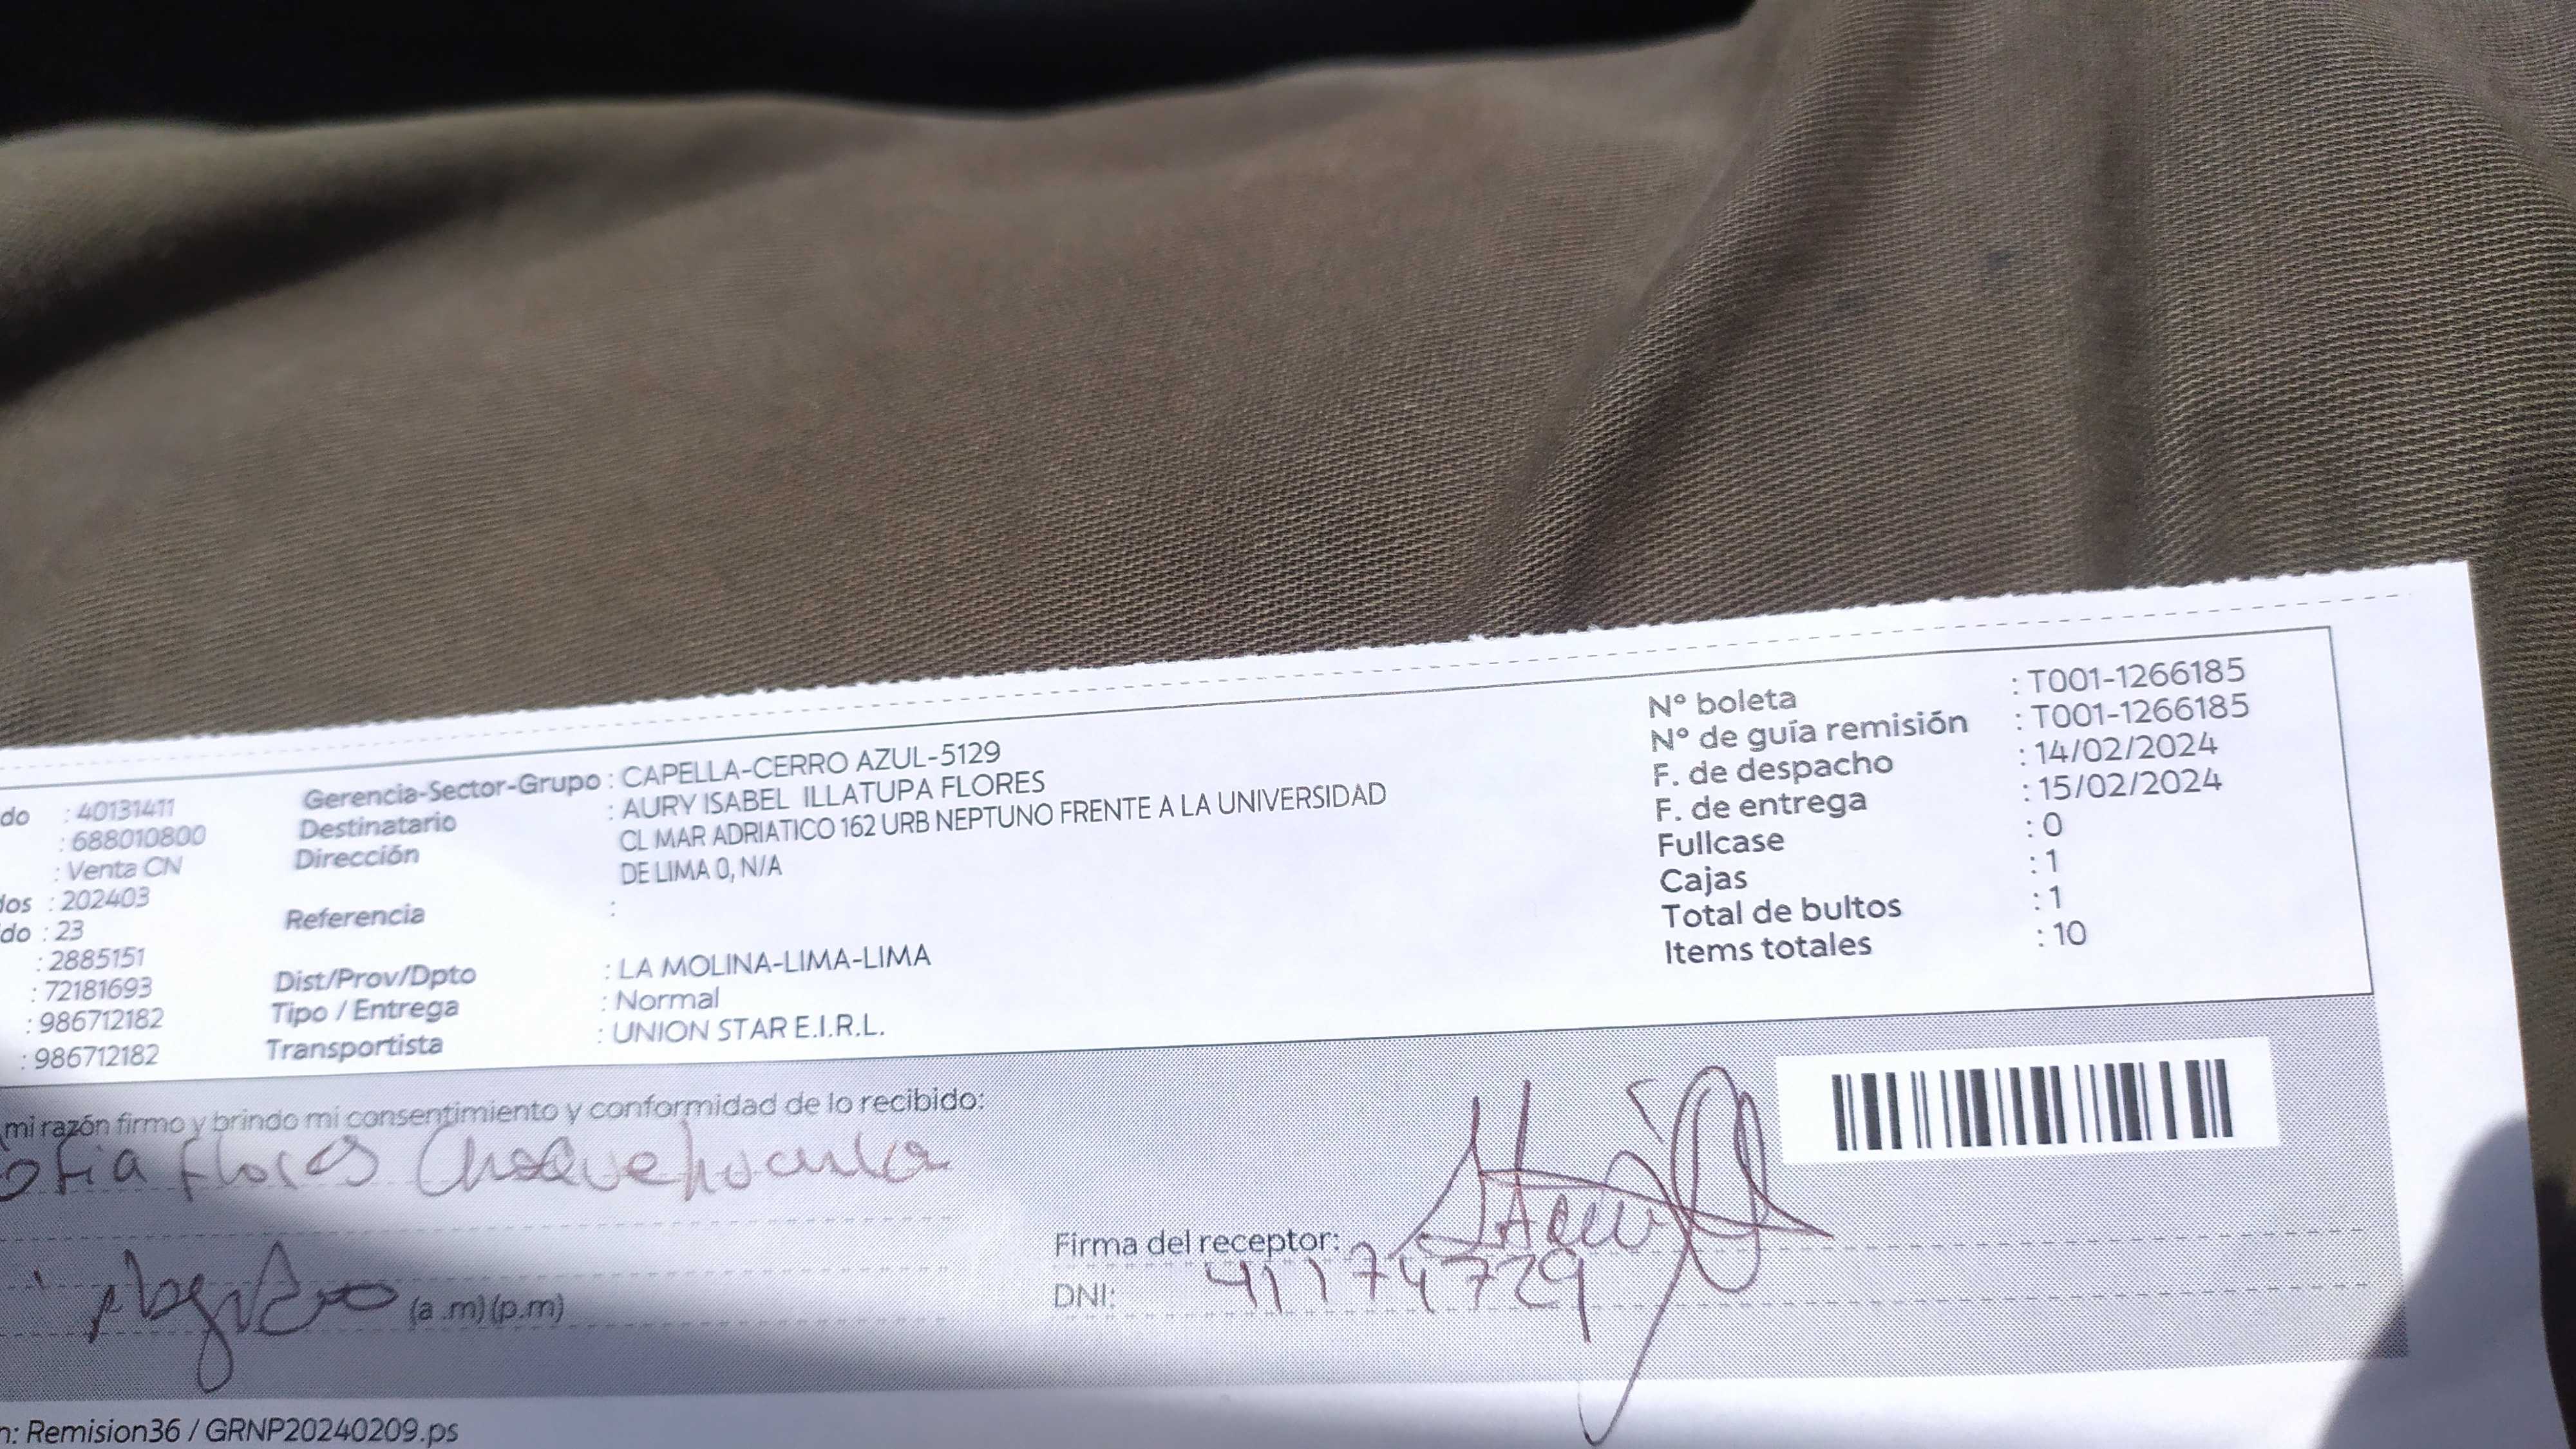 do : 40131411
: 688010800
: Venta CN
dos : 202403
do : 23
: 2885151
: 72181693
: 986712182
: 986712182
Gerencia-Sector-Grupo : CAPELLA-CERRO AZUL-5129
Destinatario : AURY ISABEL ILLATUPA FLORES
Dirección CL MAR ADRIATICO 162 URB NEPTUNO FRENTE A LA UNIVERSIDAD
DE LIMA 0, N/A
Referencia :
Dist/Prov/Dpto : LA MOLINA-LIMA-LIMA
Tipo / Entrega : Normal
Transportista : UNION STAR E.I.R.L.
Nº boleta : T001-1266185
Nº de guía remisión : T001-1266185
F. de despacho : 14/02/2024
F. de entrega : 15/02/2024
Fullcase : 0
Cajas : 1
Total de bultos : 1
Items totales : 10
mi razón firmo y brindo mi consentimiento y conformidad de lo recibido:
ofia Flores Choquehuanca
Firma del receptor:
(a .m) (p.m)
DNI: 41174729
n: Remision36 / GRNP20240209.ps